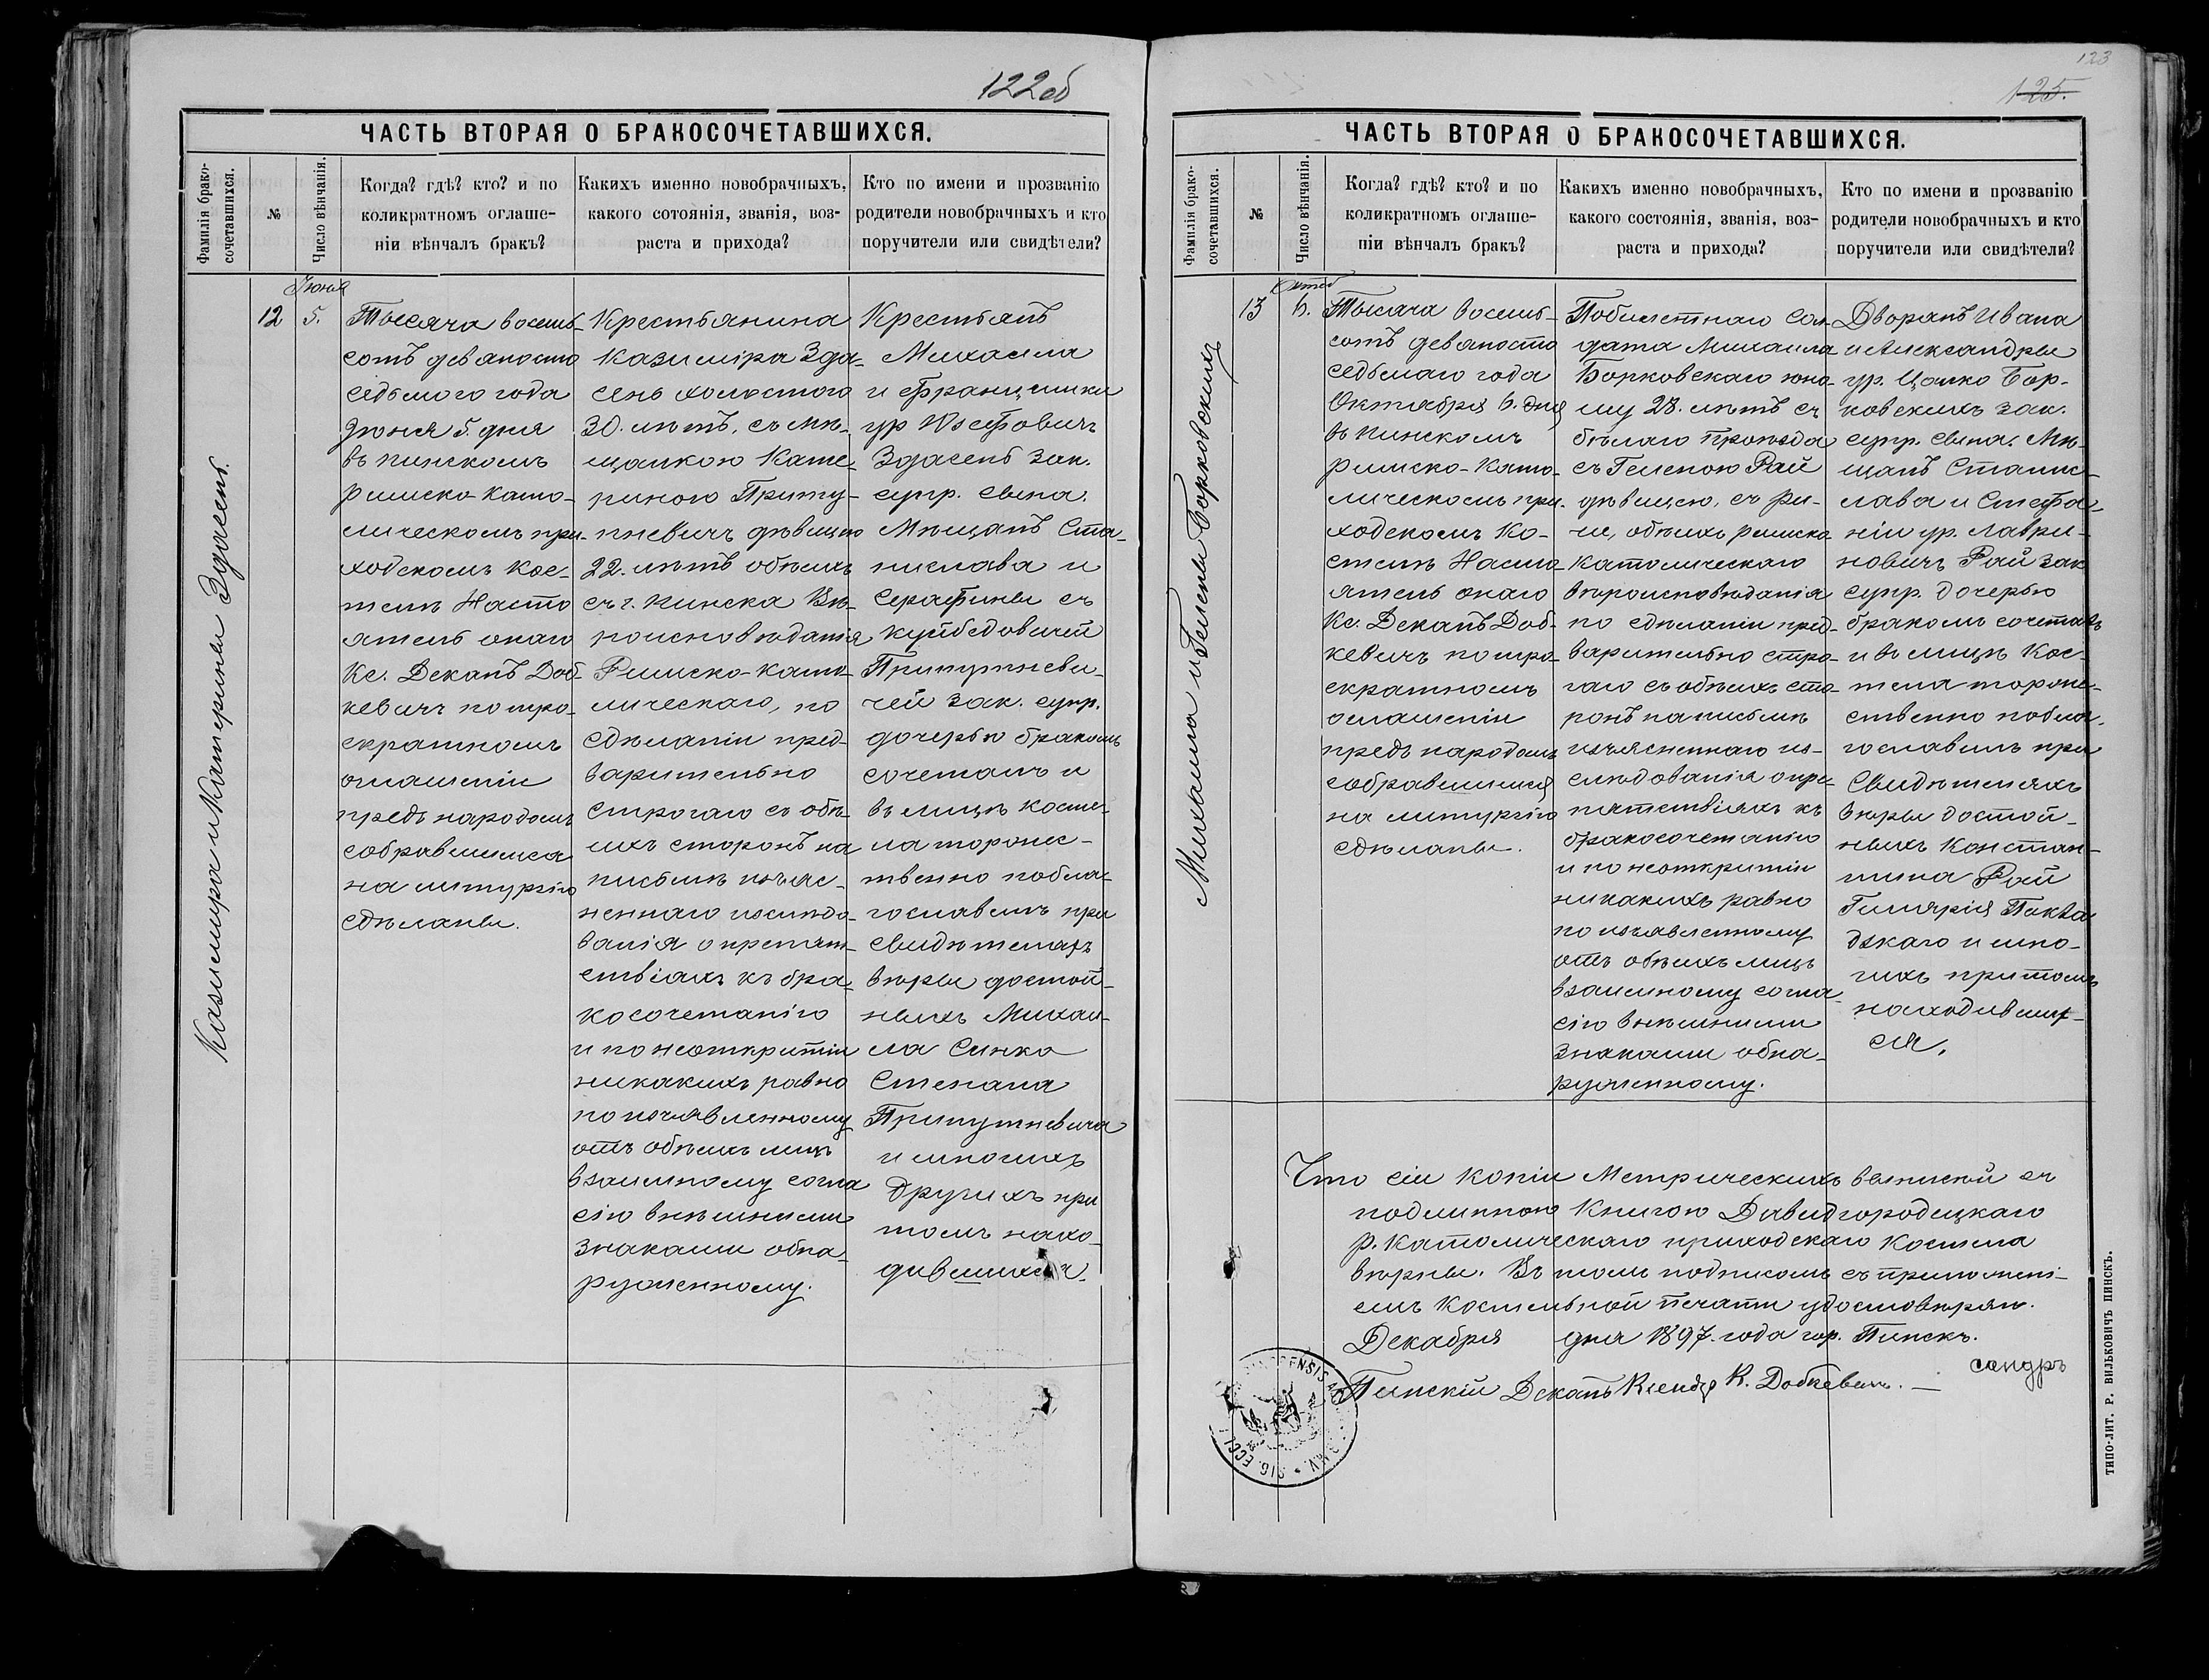 122об
ЧАСТЬ ВТОРАЯ О БРАКОСОЧЕТАВШИХСЯ.
Фамилія брако-
сочетавшихся.
№
Число вѣнчанія.
Когда? гдѣ? кто? и по
коликратномъ оглаше-
ніи вѣнчалъ бракъ?
Какихъ именно новобрачныхъ,
какого сотоянія, званія, воз-
раста и прихода?
Кто по имени и прозванію
родители новобрачныхъ и кто
поручители или свидѣтели?
Казимира и Катерины Здасень.
Іюня
12
5.
Тысяча восемь-
сотъ девяносто
седьмого года
Іюня 5. дня
въ Пинскомъ
Римско-като-
лическомъ при-
ходскомъ Кос-
телѣ Насто
ятель онаго
Кс. Деканъ Доб-
кевичъ по тро-
екратномъ
оглашеніи
предъ народомъ
собравшимся
на литургію
сдѣланы.
Крестьянина
Казиміра Зда-
сень холостого
30. лѣтъ, съ Мѣ-
щанкою Кате-
риною Припу-
тневичъ дѣвицею
22. лѣтъ обѣихъ
съ г. Пинска Вѣ-
роисповѣданія
Римско-като-
лическаго, по
сдѣланіи пред-
варительно
строгаго съ обѣ-
ихъ сторонъ на
письмѣ изъяс-
неннаго изслѣдо-
ванія о препят-
ствіяхъ къ бра-
косочетанію
и по неоткрытіи
никакихъ равно
по изъявленному
отъ обѣихъ лицъ
взаимному согла
сію внѣшними
знаками обна-
руженному.
Крестьянъ
Михаила
и Францишки
ур Юзефовичъ
Здасень зак.
супр. сына.
Мѣщанъ Ста-
нислава и
Серафины съ
Куйбедовичей
Припутневи-
чей зак. супр.
дочерью бракомъ
сочеталъ и
въ лицѣ косте-
ла торжес-
твенно побла-
гославилъ при
свидѣтеляхъ
вѣры достой-
ныхъ Михаи-
ла Синко
Степана
Припутневича
и многихъ
другихъ при
томъ нахо-
дившихся.
123
125.
ЧАСТЬ ВТОРАЯ О БРАКОСОЧЕТАВШИХСЯ.
Фамилія брако-
сочетавшихся.
№
Число вѣнчанія.
Когда? гдѣ? кто? и по
коликратномъ оглаше-
ніи вѣнчалъ бракъ?
Какихъ именно новобрачныхъ,
какого состоянія, званія, воз-
раста и прихода?
Кто по имени и прозванію
родители новобрачныхъ и кто
поручители или свидѣтели?
Михаила и Гелены Борковскихъ
Октяб
13
6.
Тысяча восемь-
сотъ девяносто
седьмаго года
Октября 6. дня
въ Пинскомъ
Римско-Като-
лическомъ при-
ходскомъ Ко-
стелѣ Насто-
ятель онаго
Кс. Деканъ Доб-
кевичъ по тро-
екратномъ
оглашеніи
предъ народомъ
собравшимся
на литургію
сдѣланы.
Побилетнаго сол-
дата Михаила
Борковскаго юно-
шу 28. лѣтъ съ
съ Геленою Рай
дѣвицею,
обѣихъ римско
католическаго
вѣроисповѣданія
по сдѣланіи пред-
варительно стро-
гаго съ обѣихъ сто-
ронъ на письмѣ
изъясненнаго из-
слѣдованія о пре-
пятствіяхъ къ
бракосочетанію
и по неоткрытіи
никакихъ равно
по изъявленному
отъ обѣихъ лицъ
взаимному согла
сію внѣшними
знаками обна-
руженному.
Дворянъ Ивана
и Александры
ур. Цалко Бор-
ковскихъ зак.
супр. сына. Мѣ-
щанъ Станис-
лава и Стефа-
ніи ур. Лаври-
новичъ Рай зак
супр. дочерью
бракомъ сочеталъ
и въ лицѣ Кос-
тела торже-
ственно побла-
гославилъ при
свидѣтеляхъ
вѣры достой-
ныхъ Констан-
тина Рай
Гилярія
и мно-
гихъ притомъ
находивших-
ся.
Что сіи копіи Метрическихъ выписей съ
подлинною Книгою Давидгородецкаго
Р. Католическаго приходскаго Костела
вѣрны. Въ томъ подписомъ съ приложені-
емъ Костельной печати удостовѣряю.
Декабря дня 1897 года гор. Пинскъ.
Пинскій Деканъ Ксендз К. Добкевичъ. —
SIG. ECCL.
ТИПО-ЛИТ. Р. ВИЛЬКОВИЧЪ ПИНСКЪ.